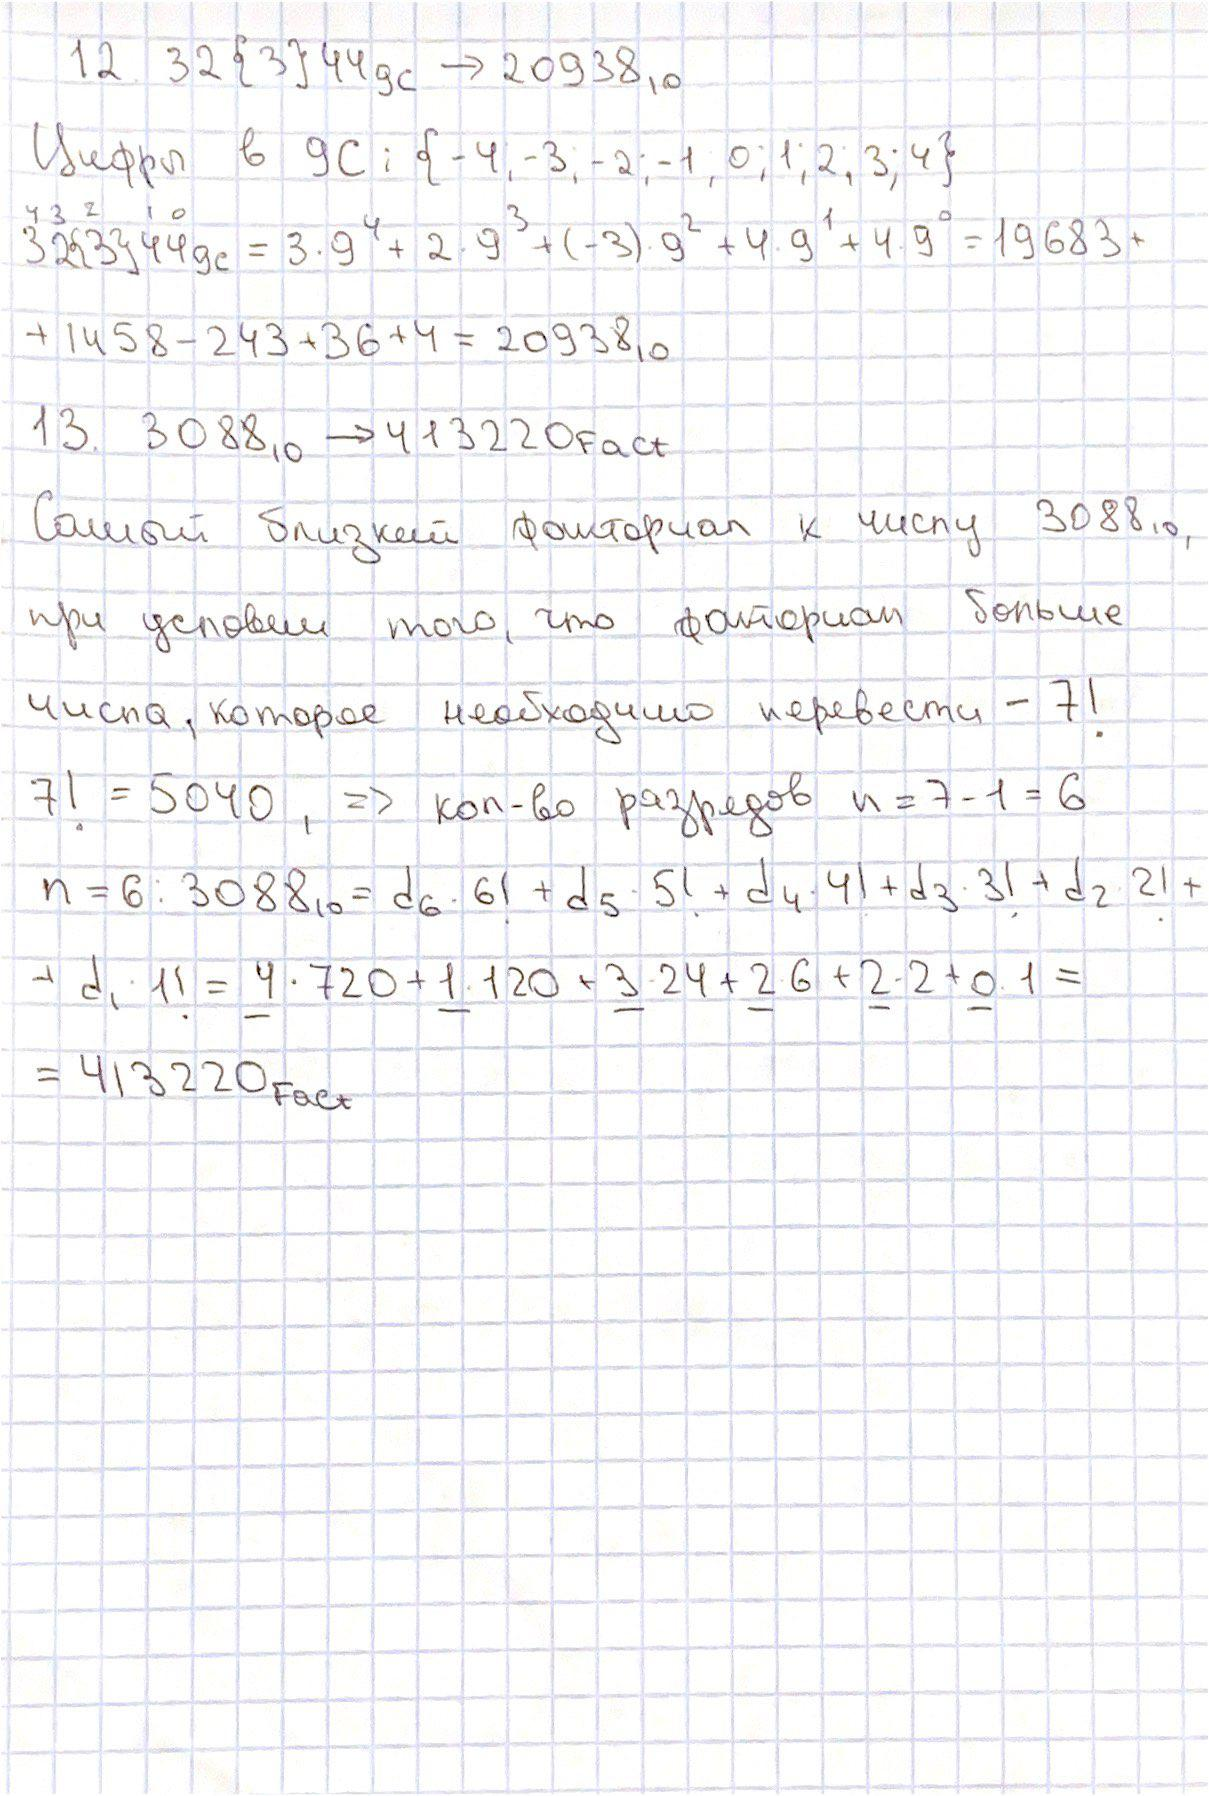 12. 32{3}44₉c → 20938₁₀
Цифры в 9С: {-4; -3; -2; -1; 0; 1; 2; 3; 4}
4 3 2 1 0
32{3}44₉c = 3·9⁴ + 2·9³ + (-3)·9² + 4·9¹ + 4·9⁰ = 19683 +
+ 1458 - 243 + 36 + 4 = 20938₁₀
13. 3088₁₀ → 413220Fact
Самый близкий факториал к числу 3088₁₀,
при условии того, что факториал больше
числа, которое необходимо перевести - 7!
7! = 5040, => кол-во разрядов n = 7 - 1 = 6
n = 6: 3088₁₀ = d₆·6! + d₅·5! + d₄·4! + d₃·3! + d₂·2! +
+ d₁·1! = 4·720 + 1·120 + 3·24 + 2·6 + 2·2 + 0·1 =
= 413220Fact